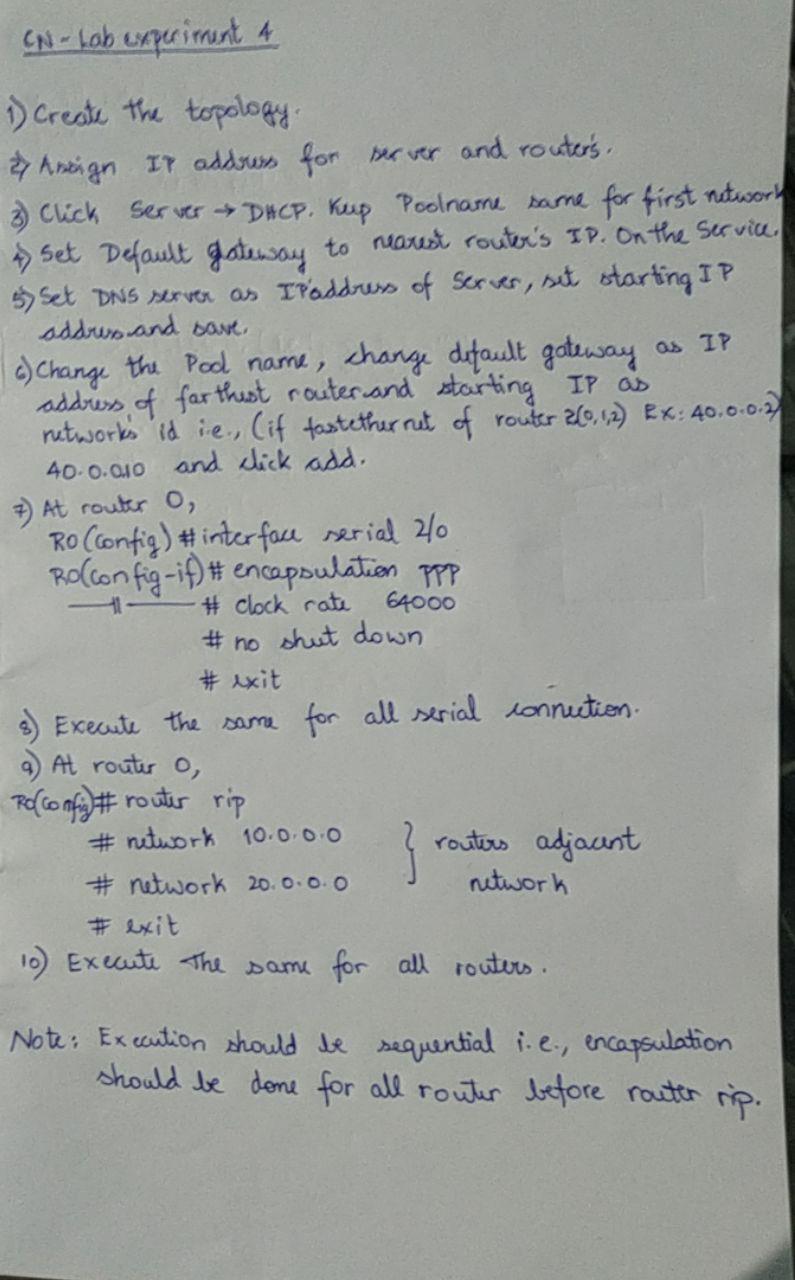 CN - Lab experiment 4
1) Create the topology.
2) Assign IP address for server and router's.
3) Click Server → DHCP. Keep Poolname same for first network
4) Set Default gateway to nearest router's IP. On the Service.
5) Set DNS server as IP address of Server, set starting IP
address and save.
6) Change the Pool name, change default gateway as IP
address of farthest router and starting IP as
network's id i.e., (if fastethernet of router 2(0,1,2) Ex: 40.0.0.2)
40.0.0.10 and click add.
7) At router 0,
R0(config)#interface serial 2/0
R0(config-if)# encapsulation PPP
—||— # clock rate 64000
# no shut down
# exit
8) Execute the same for all serial connection.
9) At router 0,
R0(config)# router rip
# network 10.0.0.0 } routers adjacent
# network 20.0.0.0 network
# exit
10) Execute the same for all routers.
Note: Execution should be sequential i.e., encapsulation
should be done for all router before router rip.